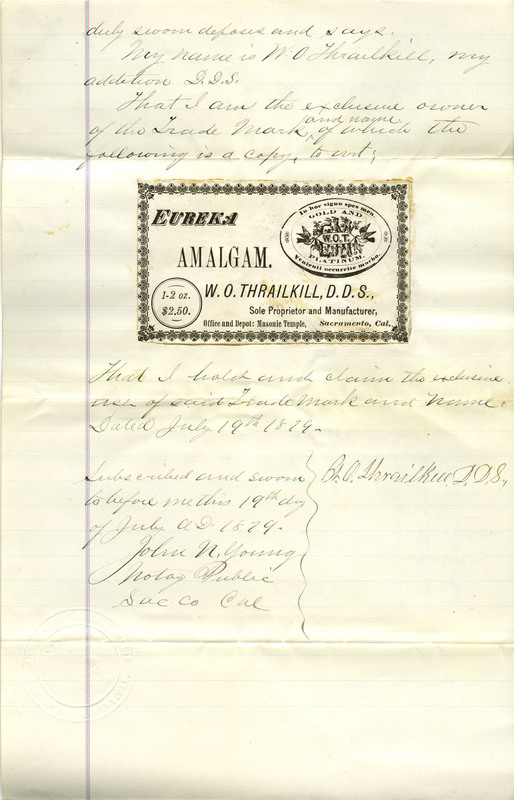 duly sworn deposes and says.
My name is W. O Thrailkill, my
addition D.D.S.
That I am the exclusive owner
of the Trade Mark, and name of which the
following is a copy, to wit;
EUREKA
AMALGAM.
In hoc signo spes mea.
GOLD AND
W.O.T.
PLATINUM.
Venienti occurrite morbo.
1-2 oz.
$2.50.
W. O. THRAILKILL, D. D. S.,
Sole Proprietor and Manufacturer,
Office and Depot: Masonic Temple, Sacramento, Cal.
That I hold and claim the exclusive
use of said Trade Mark and Name.
Dated July 19th 1879.
W. O. Thrailkill D.D.S.,
Subscribed and sworn
to before me this 19th day
of July AD. 1879.
John N. Young
Notay Public
Sac Co Cal